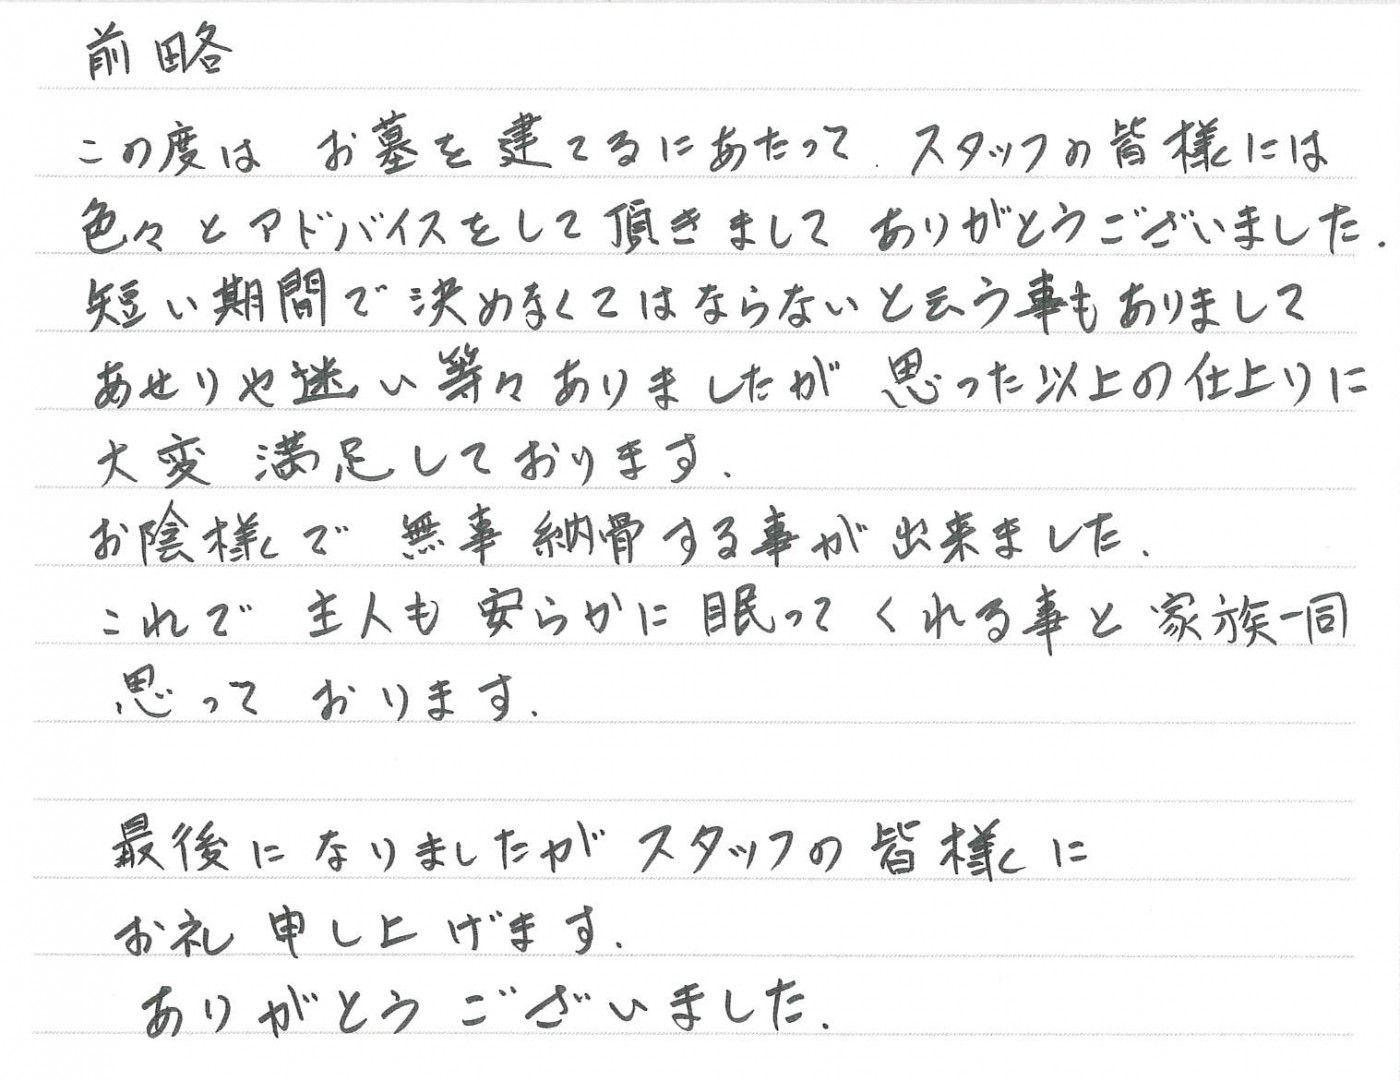 前略
この度は お墓を建てるにあたって、スタッフの皆様には
色々とアドバイスをして頂きまして ありがとうございました.
短い期間で決めなくてはならないと云う事もありまして
あせりや迷い等々ありましたが 思った以上の仕上りに
大変 満足しております.
お陰様で 無事 納骨する事が出来ました.
これで 主人も 安らかに 眠って くれる事と 家族一同
思って おります.
最後になりましたが スタッフの皆様に
お礼 申し上げます.
ありがとう ございました.